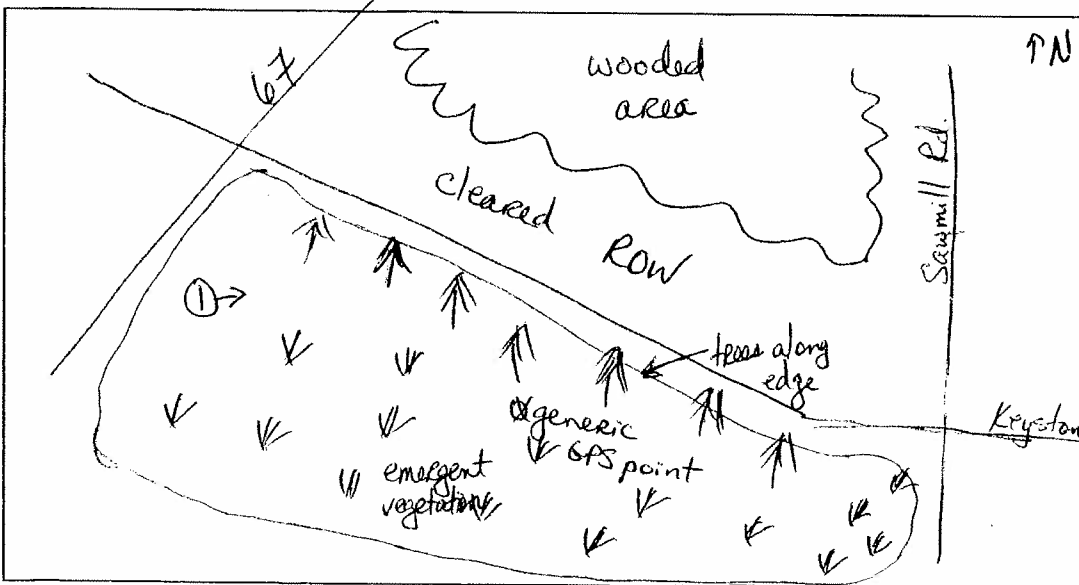 wooded
area
↑N
67
Sawmill Rd.
cleared
ROW
①→
trees along
edge
Keyston
generic
GPS point
emergent
vegetation